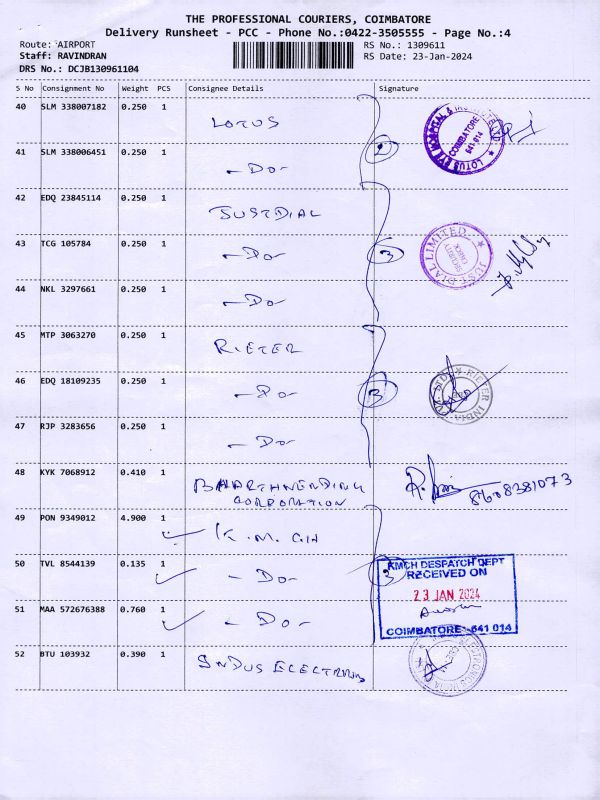 THE PROFESSIONAL COURIERS, COIMBATORE
Delivery Runsheet - PCC - Phone No.:0422-3505555 - Page No.:4
Route: AIRPORT RS No.: 1309611
Staff: RAVINDRAN RS Date: 23-Jan-2024
DRS No.: DCJB130961104
S No Consignment No Weight PCS Consignee Details Signature
40 SLM 338007182 0.250 1 LOTUS
LOTUS EYE HOSPITAL & INSTITUTE LTD COIMBATORE 641 014
41 SLM 338006451 0.250 1 -Do- 2
42 EDQ 23845114 0.250 1 JUSTDIAL
43 TCG 105784 0.250 1 -Do- 3
JUST DIAL LIMITED SECURITY CHECK
44 NKL 3297661 0.250 1 -Do-
45 MTP 3063270 0.250 1 RIETER
46 EDQ 18109235 0.250 1 -Do- 3
RIETER INDIA PVT. LTD.
47 RJP 3283656 0.250 1 -Do-
48 KYK 7068912 0.410 1 BHARTHVENDING
CORPORATION 8608381073
49 PON 9349012 4.900 1 K.M.CH
50 TVL 8544139 0.135 1 -Do- 3
KMCH DESPATCH DEPT
RECEIVED ON
23 JAN 2024
COIMBATORE - 641 014
51 MAA 572676388 0.760 1 -Do-
52 BTU 103932 0.390 1 INDUS ELECTRONS